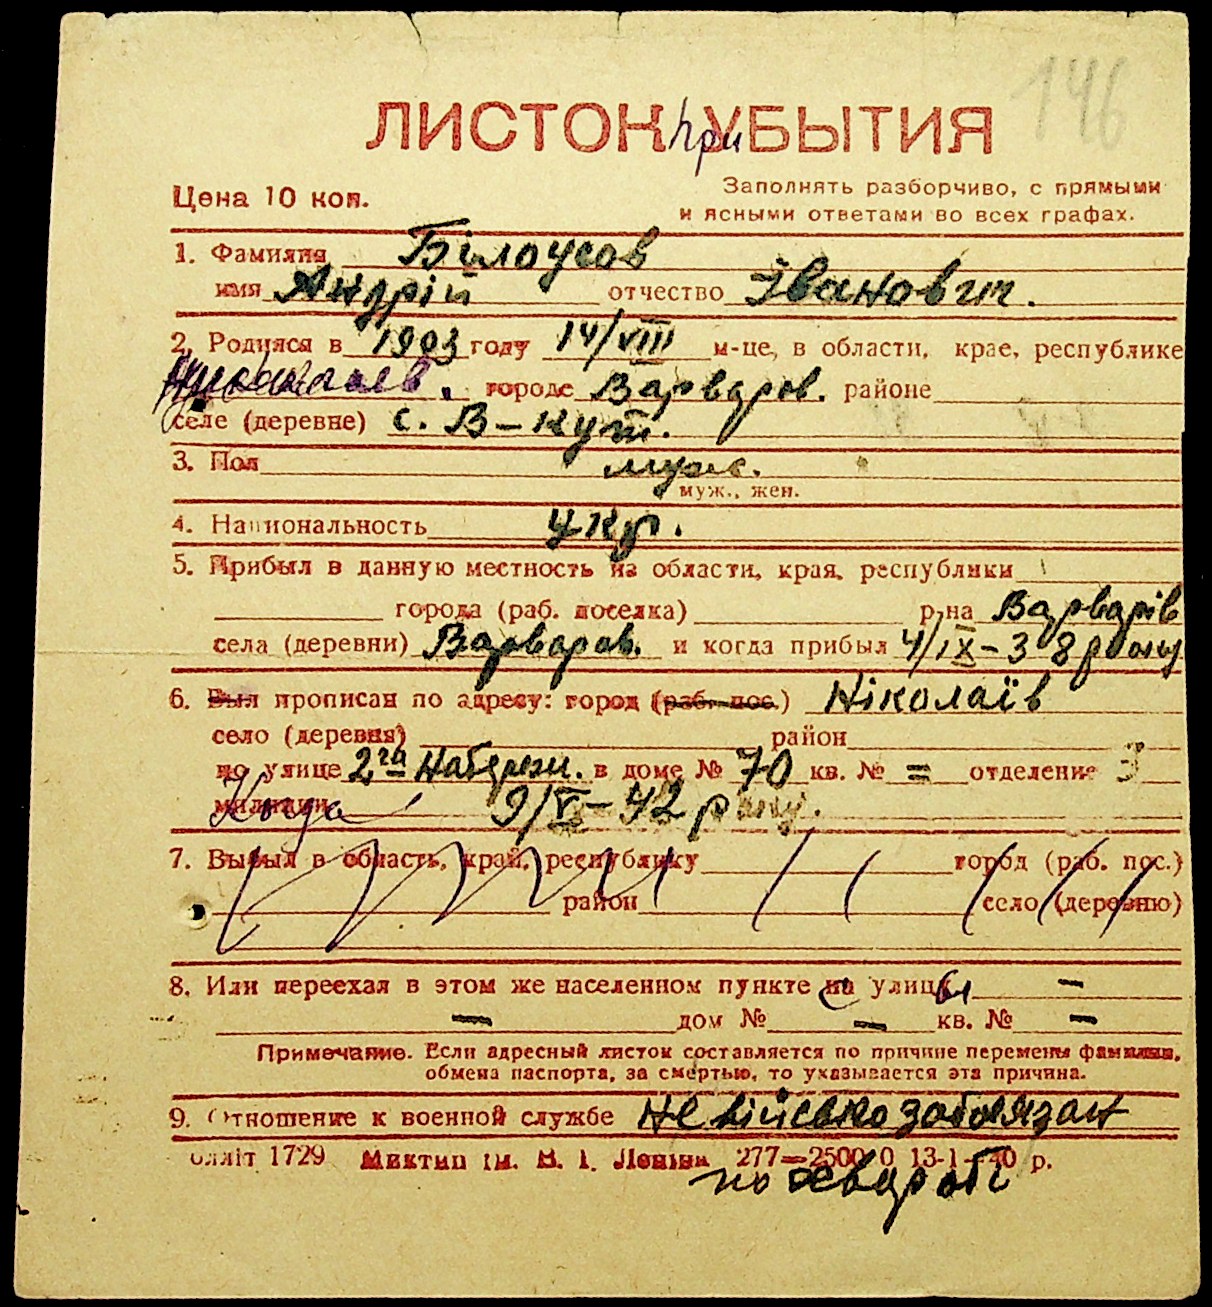 146
ЛИСТОК при УБЫТИЯ
Цена 10 коп.
Заполнять разборчиво, с прямыми
и ясными ответами во всех графах.
1. Фамилия Білоусов
имя Андрій отчество Іванович.
2. Родился в 1903 году 14/VIII м-це, в области, крае, республике
Николаев. городе Варваров. районе
селе (деревне) с. В-Кут.
3. Пол муж.
муж., жен.
4. Национальность укр.
5. Прибыл в данную местность из области, края, республики
города (раб. поселка) р-на Варварів
села (деревни) Варваров. и когда прибыл 4/IX-38 року
6. Был прописан по адресу: город (раб. пос.) Ніколаїв
село (деревня) район
по улице 2га Набереж. в доме № 70 кв. № = отделение 3
милиции 9/V-42 року.
7. Выбыл в область, край, республику город (раб. пос.)
район село (деревню)
8. Или переехал в этом же населенном пункте на с улицы -
- дом № - кв. № -
Примечание. Если адресный листок составляется по причине перемены фамилии,
обмена паспорта, за смертью, то указывается эта причина.
9. Отношение к военной службе не військовозобовязан
олліт 1729 Миктип ім. В. І. Леніна 277—25000 13-1—40 р.
по хворобі